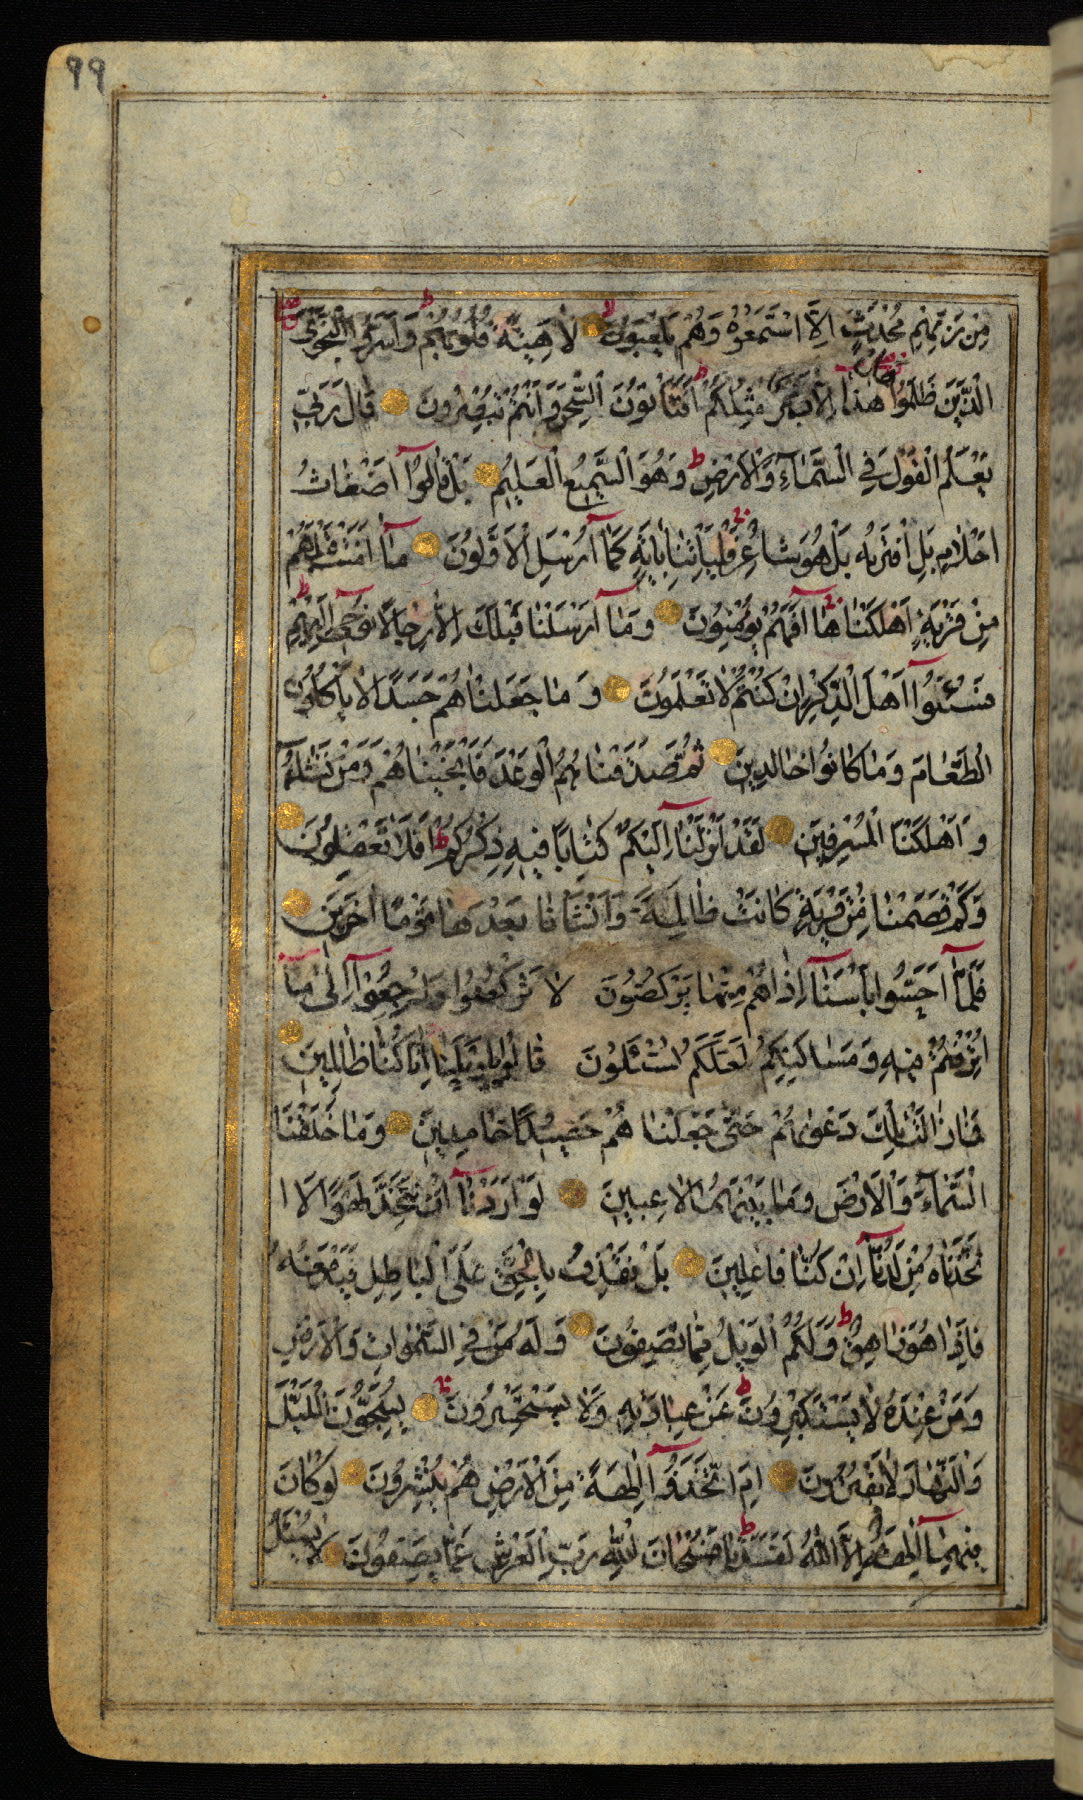 ٩٩
مِنْ رَبِّهِمْ مُحْدَثٍ اِلَّا اسْتَمَعُوهُ وَهُمْ يَلْعَبُونَ لَاهِيَةً قُلُوبُهُمْ وَاَسَرُّوا النَّجْوَى
الَّذِينَ ظَلَمُوا هَلْ هٰذَا اِلَّا بَشَرٌ مِثْلُكُمْ اَفَتَأْتُونَ السِّحْرَ وَاَنْتُمْ تُبْصِرُونَ قَالَ رَبِّي
يَعْلَمُ الْقَوْلَ فِي السَّمَآءِ وَالْاَرْضِ وَهُوَ السَّمِيعُ الْعَلِيمُ بَلْ قَالُوآ اَضْغَاثُ
اَحْلَامٍ بَلِ افْتَرٰيهُ بَلْ هُوَ شَاعِرٌ فَلْيَأْتِنَا بِاٰيَةٍ كَمَآ اُرْسِلَ الْاَوَّلُونَ مَآ اٰمَنَتْ قَبْلَهُمْ
مِنْ قَرْيَةٍ اَهْلَكْنَاهَآ اَفَهُمْ يُؤْمِنُونَ وَمَآ اَرْسَلْنَا قَبْلَكَ اِلَّا رِجَالًا نُوحِي اِلَيْهِمْ
فَسْئَلُوآ اَهْلَ الذِّكْرِ اِنْ كُنْتُمْ لَا تَعْلَمُونَ وَمَا جَعَلْنَاهُمْ جَسَدًا لَا يَأْكُلُونَ
الطَّعَامَ وَمَا كَانُوا خَالِدِينَ ثُمَّ صَدَقْنَاهُمُ الْوَعْدَ فَاَنْجَيْنَاهُمْ وَمَنْ نَشَآءُ
وَاَهْلَكْنَا الْمُسْرِفِينَ لَقَدْ اَنْزَلْنَآ اِلَيْكُمْ كِتَابًا فِيهِ ذِكْرُكُمْ اَفَلَا تَعْقِلُونَ
وَكَمْ قَصَمْنَا مِنْ قَرْيَةٍ كَانَتْ ظَالِمَةً وَاَنْشَأْنَا بَعْدَهَا قَوْمًا اٰخَرِينَ
فَلَمَّآ اَحَسُّوا بَأْسَنَآ اِذَا هُمْ مِنْهَا يَرْكُضُونَ لَا تَرْكُضُوا وَارْجِعُوآ اِلٰى مَآ
اُتْرِفْتُمْ فِيهِ وَمَسَاكِنِكُمْ لَعَلَّكُمْ تُسْئَلُونَ قَالُوا يَا وَيْلَنَا اِنَّا كُنَّا ظَالِمِينَ
فَمَا زَالَتْ تِلْكَ دَعْوٰيهُمْ حَتّٰى جَعَلْنَاهُمْ حَصِيدًا خَامِدِينَ وَمَا خَلَقْنَا
السَّمَآءَ وَالْاَرْضَ وَمَا بَيْنَهُمَا لَاعِبِينَ لَوْ اَرَدْنَآ اَنْ نَتَّخِذَ لَهْوًا لَا
تَّخَذْنَاهُ مِنْ لَدُنَّآ اِنْ كُنَّا فَاعِلِينَ بَلْ نَقْذِفُ بِالْحَقِّ عَلَى الْبَاطِلِ فَيَدْمَغُهُ
فَاِذَا هُوَ زَاهِقٌ وَلَكُمُ الْوَيْلُ مِمَّا تَصِفُونَ وَلَهُ مَنْ فِي السَّمٰوَاتِ وَالْاَرْضِ
وَمَنْ عِنْدَهُ لَا يَسْتَكْبِرُونَ عَنْ عِبَادَتِهِ وَلَا يَسْتَحْسِرُونَ يُسَبِّحُونَ الَّيْلَ
وَالنَّهَارَ لَا يَفْتُرُونَ اَمِ اتَّخَذُوآ اٰلِهَةً مِنَ الْاَرْضِ هُمْ يُنْشِرُونَ لَوْ كَانَ
فِيهِمَآ اٰلِهَةٌ اِلَّا اللّٰهُ لَفَسَدَتَا فَسُبْحَانَ اللّٰهِ رَبِّ الْعَرْشِ عَمَّا يَصِفُونَ لَا يُسْئَلُ